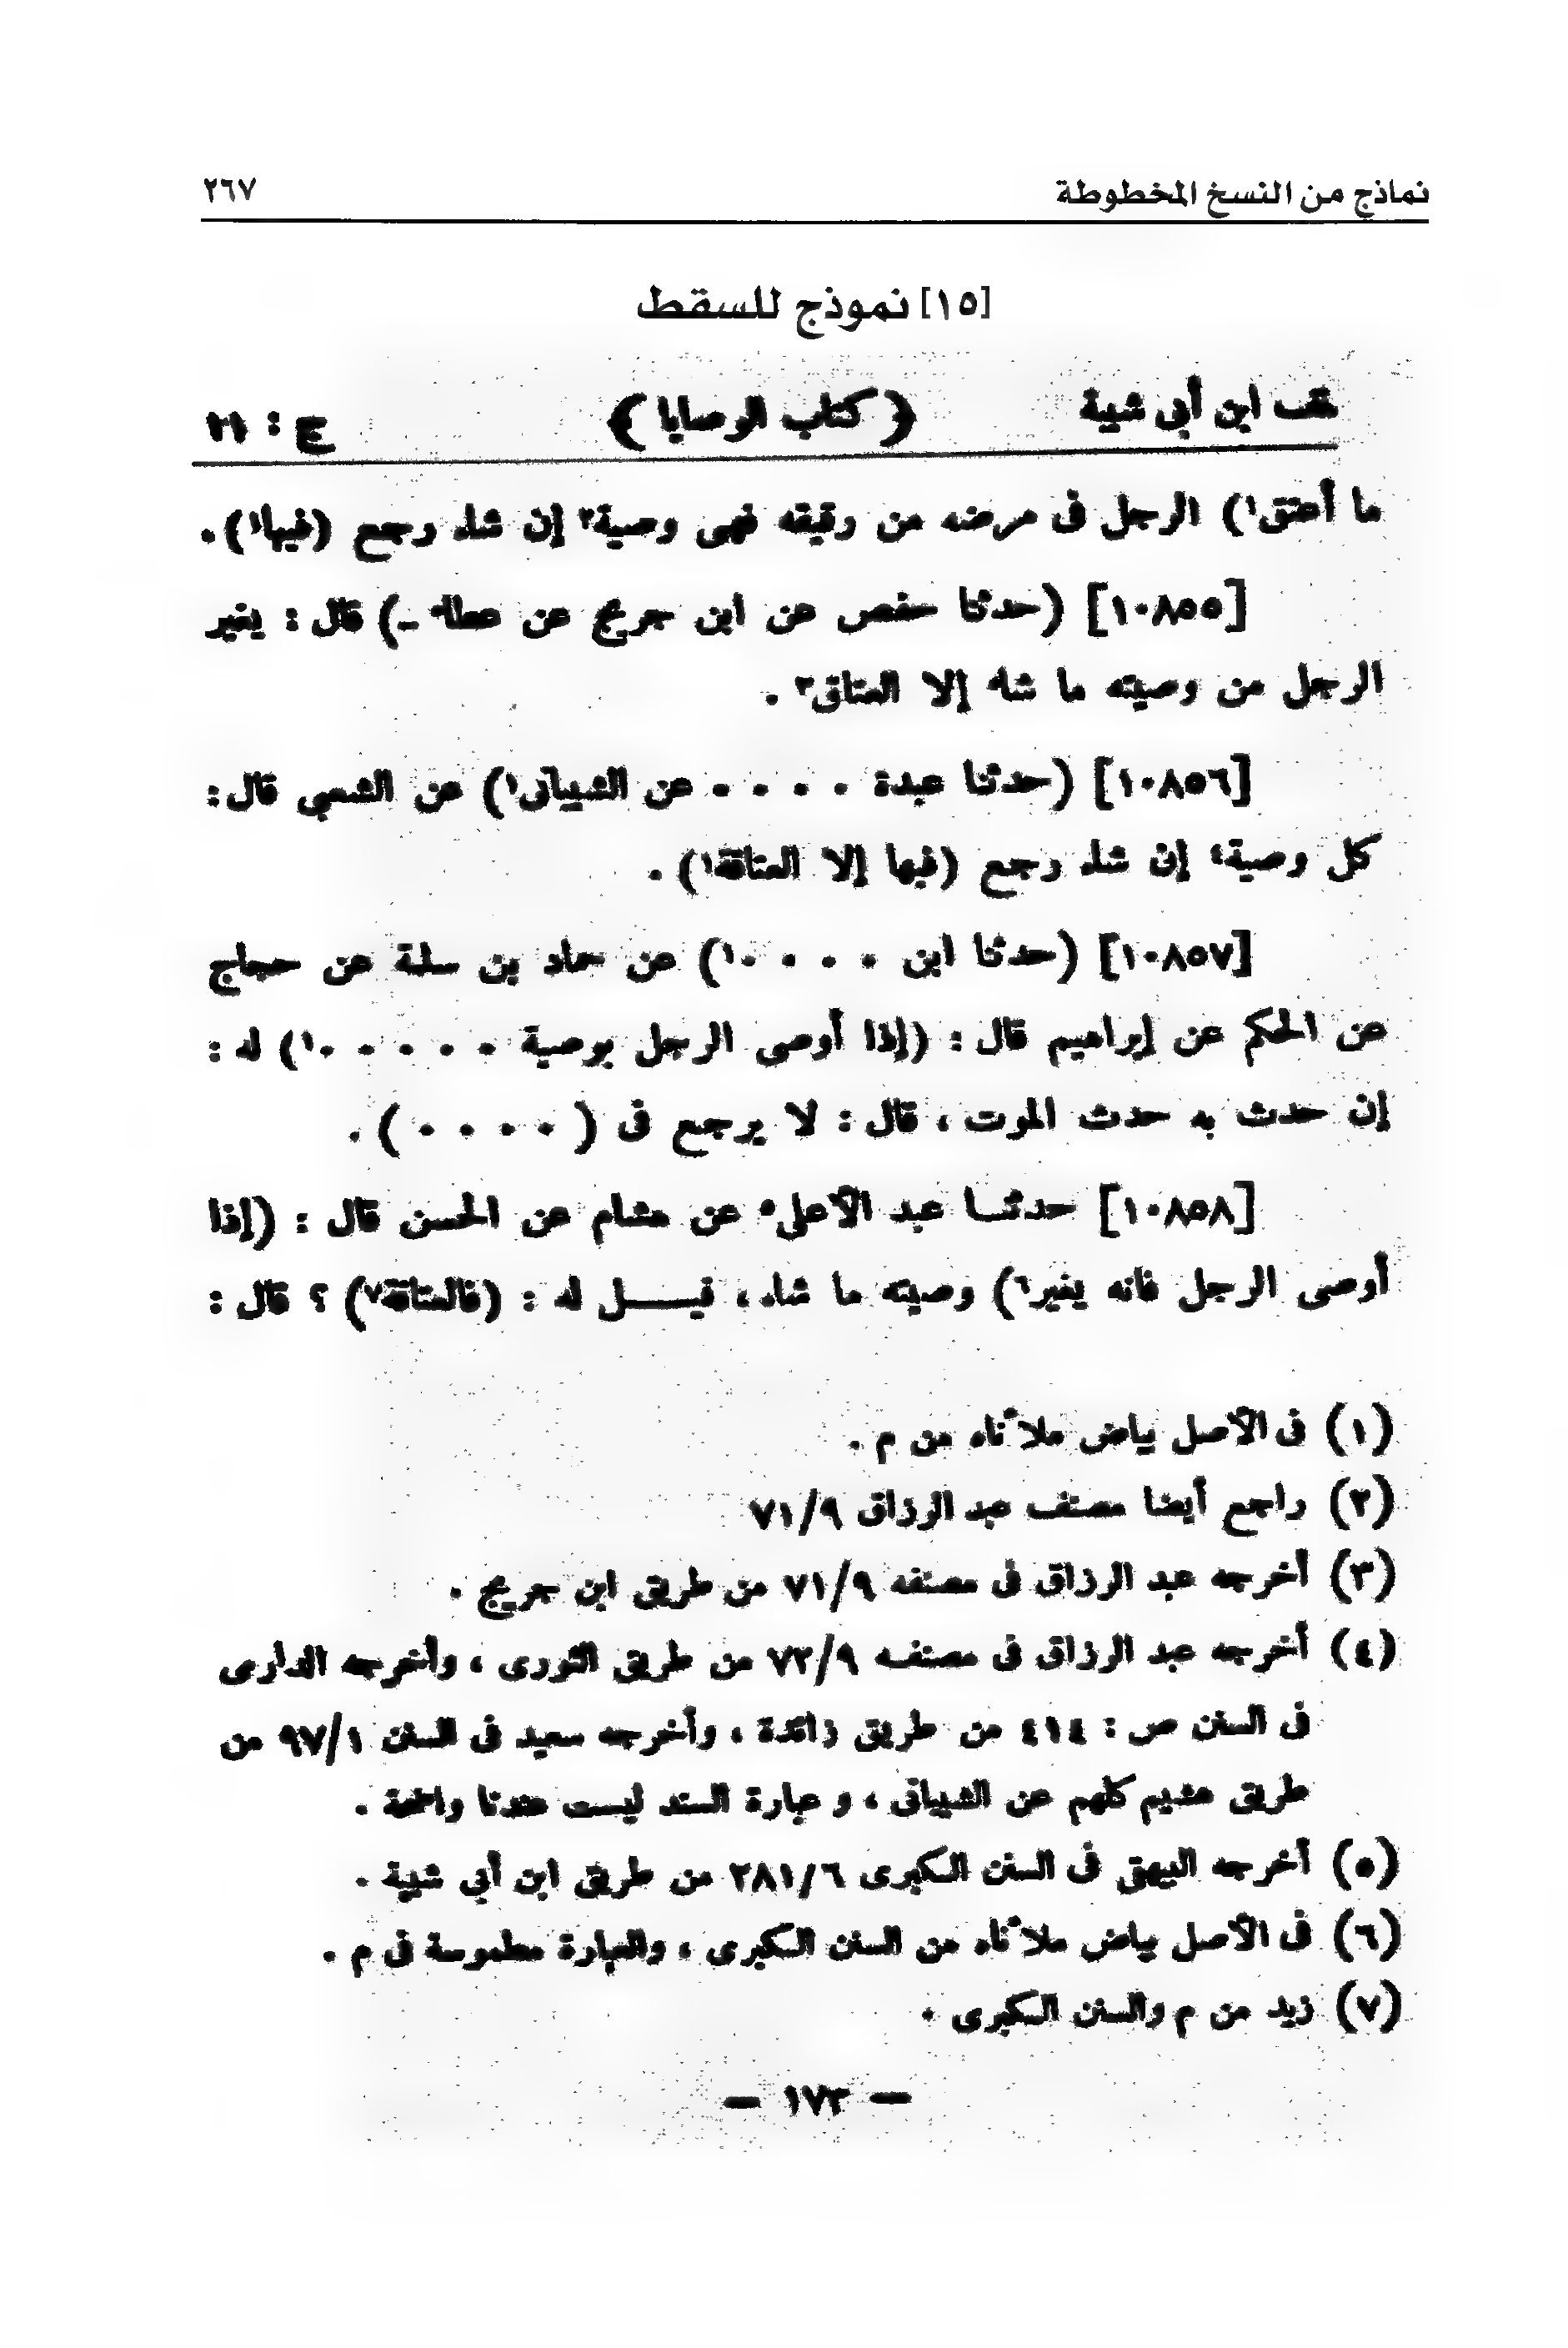 نماذج من النسخ المخطوطة ٢٦٧
[١٥] نموذج للسقط
ـنف ابن أبى شيبة ﴿ كتاب الوصايا ﴾ ج : ١١
ما أعتق١) الرجل فى مرضه من رقيقه فهى وصية٢ إن شاء رجع (فيها١) .
[١٠٨٥٥] (حدثنا حفص عن ابن جريج عن عطاء ـ) قال : يغير
الرجل من وصيته ما شاء إلا العتاق٣ .
[١٠٨٥٦] (حدثنا عبدة ٠ ٠ ٠ ٠ عن الشيبانى١) عن الشعبي قال :
كل وصية٤ إن شاء رجع (فيها إلا العتاقة١) .
[١٠٨٥٧] (حدثنا ابن ٠ ٠ ٠ ٠١) عن حماد بن سلمة عن حجاج
عن الحكم عن إبراهيم قال : (إذا أوصى الرجل بوصية ٠ ٠ ٠ ٠ ٠١) له :
إن حدث به حدث الموت ، قال : لا يرجع فى ( ٠ ٠ ٠ ٠ ) .
[١٠٨٥٨] حدثنـا عبد الأعلى٥ عن هشام عن الحسن قال : (إذا
أوصى الرجل فانه يغير٦) وصيته ما شاء ، قيـــل له : (فالعتاقة٧) ؟ قال :
(١) فى الأصل بياض ملأناه من م .
(٢) راجع أيضا مصنف عبد الرزاق ٧١/٩
(٣) أخرجه عبد الرزاق فى مصنفه ٧١/٩ من طريق ابن جريج .
(٤) أخرجه عبد الرزاق فى مصنفـه ٧٢/٩ من طريق الثورى ، وأخرجه الدارى
فى السنن ص : ٤١٤ من طريق زائدة ، وأخرجه سعيد فى السنن ٩٧/١ من
طريق هشيم كلهم عن الشيبانى ، و عبارة السند ليست عندنا واضحة .
(٥) أخرجه البيهقى فى السنن الـكبرى ٢٨١/٦ من طريق ابن أبي شيبة .
(٦) فى الأصل بياض ملأناه من السنن الـكبرى ، والعبارة مطموسة فى م .
(٧) زيد من م والسنن الـكبرى .
— ١٧٣ —